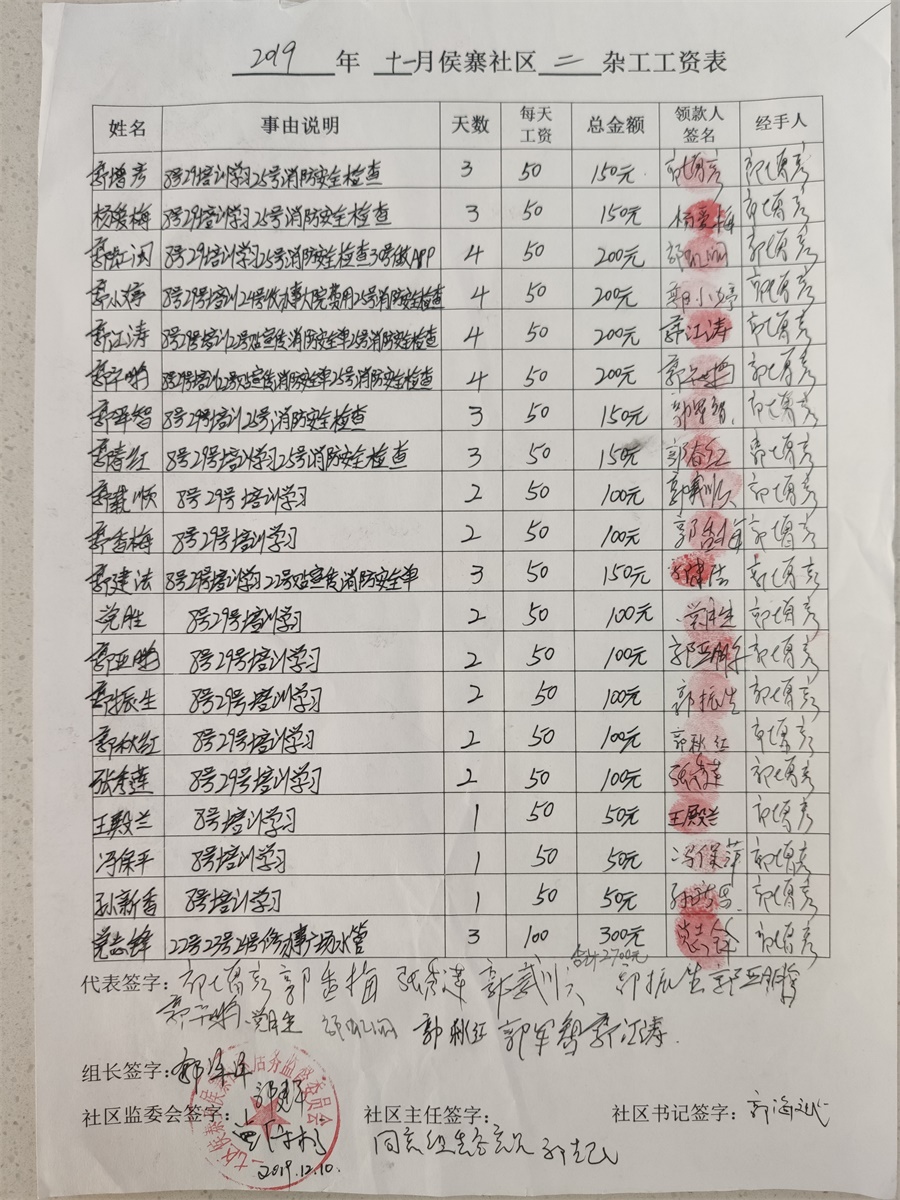 2019 年 十一月侯寨社区 二 杂工工资表
姓名 事由说明 天数 每天工资 总金额 领款人签名 经手人
郭增彦 8号29培训学习25号消防安全检查 3 50 150元 郭增彦 郭增彦
杨爱梅 8号29培训学习25号消防安全检查 3 50 150元 杨爱梅 郭增彦
8号29培训学习25号消防安全检查30号做APP 4 50 200元 郭增彦
郭小婷 8号29号培训24号收办事大院费用25号消防安全检查 4 50 200元 郭小婷 郭增彦
郭江涛 8号29号培训22号贴宣传消防安全单25号消防安全检查 4 50 200元 郭江涛 郭增彦
8号29号培训22号贴宣传消防安全单25号消防安全检查 4 50 200元 郭增彦
郭军智 8号29号培训25号消防安全检查 3 50 150元 郭军智 郭增彦
郭春红 8号29号培训学习25号消防安全检查 3 50 150元 郭春红 郭增彦
郭武顺 8号29号培训学习 2 50 100元 郭武顺 郭增彦
郭香梅 8号29号培训学习 2 50 100元 郭香梅 郭增彦
郭建法 8号29号培训学习22号贴宣传消防安全单 3 50 150元 郭建法 郭增彦
党胜 8号29号培训学习 2 50 100元 党胜 郭增彦
郭亚鹏 8号29号培训学习 2 50 100元 郭亚鹏 郭增彦
郭振生 8号29号培训学习 2 50 100元 郭振生 郭增彦
郭秋红 8号29号培训学习 2 50 100元 郭秋红 郭增彦
张秀莲 8号29号培训学习 2 50 100元 张秀莲 郭增彦
王殿兰 8号培训学习 1 50 50元 王殿兰 郭增彦
冯保平 8号培训学习 1 50 50元 冯保萍 郭增彦
孙新香 8号培训学习 1 50 50元 孙新香 郭增彦
党志锋 22号23号24号修办事广场水管 3 100 300元 党志锋 郭增彦
合计2700元
代表签字：郭增彦 郭香梅 张秀莲 郭武顺 郭振生 郭亚鹏
党胜 郭秋红 郭军智 郭江涛
组长签字：
社区监委会签字： 社区主任签字： 社区书记签字：
同意组里意见
2019.12.10.